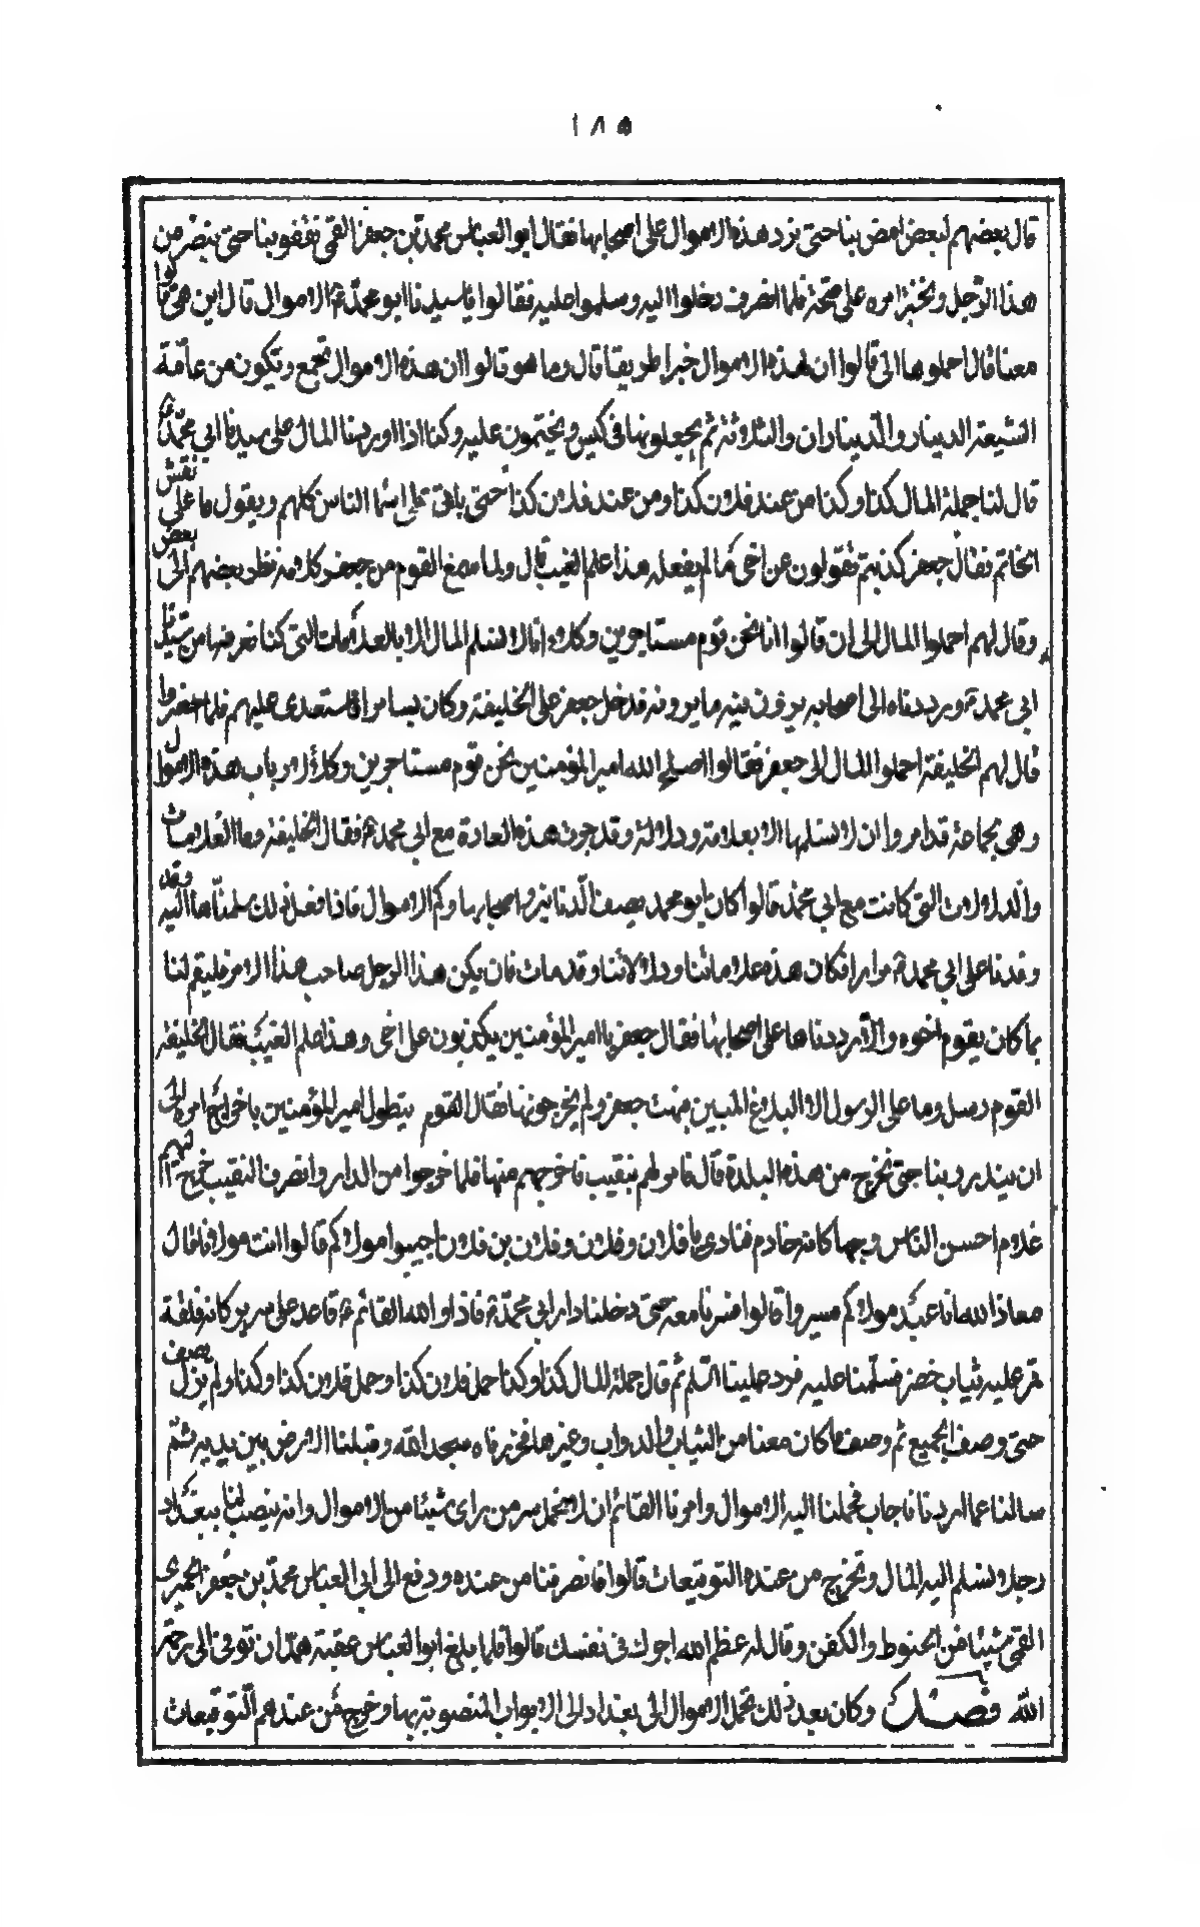 ١٨٥
قال بعضهم لبعض امض بنا حتى نرد هذه الاموال على اصحابها فقال ابو العباس محمد بن جعفر القمي قفوا بنا حتى ينصرف
هذا الرجل ونختبر امره على صحة فلما انصرف دخلوا اليه وسلموا عليه فقالوا يا سيدنا ابو محمد ع الاموال قال اين هي قالوا
معنا قال احملوها الي قالوا ان لهذه الاموال خبرا طريقا قال وما هو قالوا ان هذه الاموال تجمع وتكون من عامّة
الشيعة الدينار والديناران والثلاثة ثم يجعلونها في كيس ويختمون عليه وكنا اذا اوردنا المال على سيدنا ابي محمد
قال لنا جملة المال كذا وكذا من عند فلان كذا ومن عند فلان كذا حتى ياتي على اسماء الناس كلهم ويقول ما على نقش
الخاتم فقال جعفر كذبتم تقولون عن اخي ما لم يفعله هذا علم الغيب قال ولما سمع القوم من جعفر كلامه نظر بعضهم الى بعض
وقال لهم احملوا المال الي ان قالوا انا نحن قوم مستاجرين وكلاء انا لا نسلم المال الا بالعلامات التي كنا نعرفها من سيدنا
ابي محمد ع ورددناه الى اصحابه يرون فيه ما يرونه فدخل جعفر على الخليفة وكان بسامرا فاستعدى عليهم فلما احضروا
قال لهم الخليفة احملوا المال الى جعفر فقالوا اصلح الله امير المؤمنين نحن قوم مستاجرين وكلاء لارباب هذه الاموال
وهي بجماعة قد امروا ان لا نسلمها الا بعلامة ودلالة وقد جرت هذه العادة مع ابي محمد ع فقال الخليفة وما العلامات
والدلالات التي كانت مع ابي محمد قالوا كان ابو محمد يصف الدنانير واصحابها وكم الاموال فاذا فعل ذلك سلمناها اليه وقد
وفدنا على ابي محمد ع مرارا فكان هذه علاماتنا ودلالاتنا وقد مات فان يكن هذا الرجل صاحب هذا الامر فليقم لنا
بما كان يقوم اخوه والا رددناها على اصحابها فقال جعفر يا امير المؤمنين يكذبون على اخي وهذا علم الغيب فقال الخليفة
القوم رسل وما على الرسول الا البلاغ المبين فبهت جعفر ولم يخرجونها فقال القوم يتطول امير المؤمنين باخراج امره الى
ان يبدر بنا حتى نخرج من هذه البلدة قال فامر لهم بنقيب فاخرجهم منها فلما خرجوا من الدار وانصرف النقيب خرج اليهم
غلام احسن الناس وجها كانه خادم فنادى يا فلان وفلان وفلان بن فلان اجيبوا مولاكم قالوا انت مولانا قال
معاذ الله انا عبد مولاكم مسيروا قالوا فسرنا معه حتى دخلنا دار ابي محمد ع فاذا والله القائم ع قاعد على سرير كانه فلقة
قمر عليه ثياب خضر فسلمنا عليه فرد علينا السلم ثم قال جملة المال كذا وكذا حمل فلان كذا وحمل فلان كذا وكذا ولم يزل يصف
حتى وصف الجميع ثم وصف ما كان معنا من الثياب والدواب وغيرها فخررنا سجدا لله وقبلنا الارض بين يديه ثم
سالنا عما اردنا فاجاب فحملنا اليه الاموال وامرنا القائم ان لا نحمل سر من راى شيئا من الاموال وانه ينصب لنا ببغداد
رجلا نسلم اليه المال وتخرج من عنده التوقيعات قالوا فانصرفنا من عنده ودفع الى ابي العباس محمد بن جعفر الحميرى
القمي شيئا من الحنوط والكفن وقال له عظم الله اجرك في نفسك قالوا فلما بلغ ابو العباس عقبة همدان توفى الى رحمة
الله فصل وكان بعد ذلك تحمل الاموال الى بغداد الى الابواب المنصوبة بها وخرج من عندهم التوقيعات